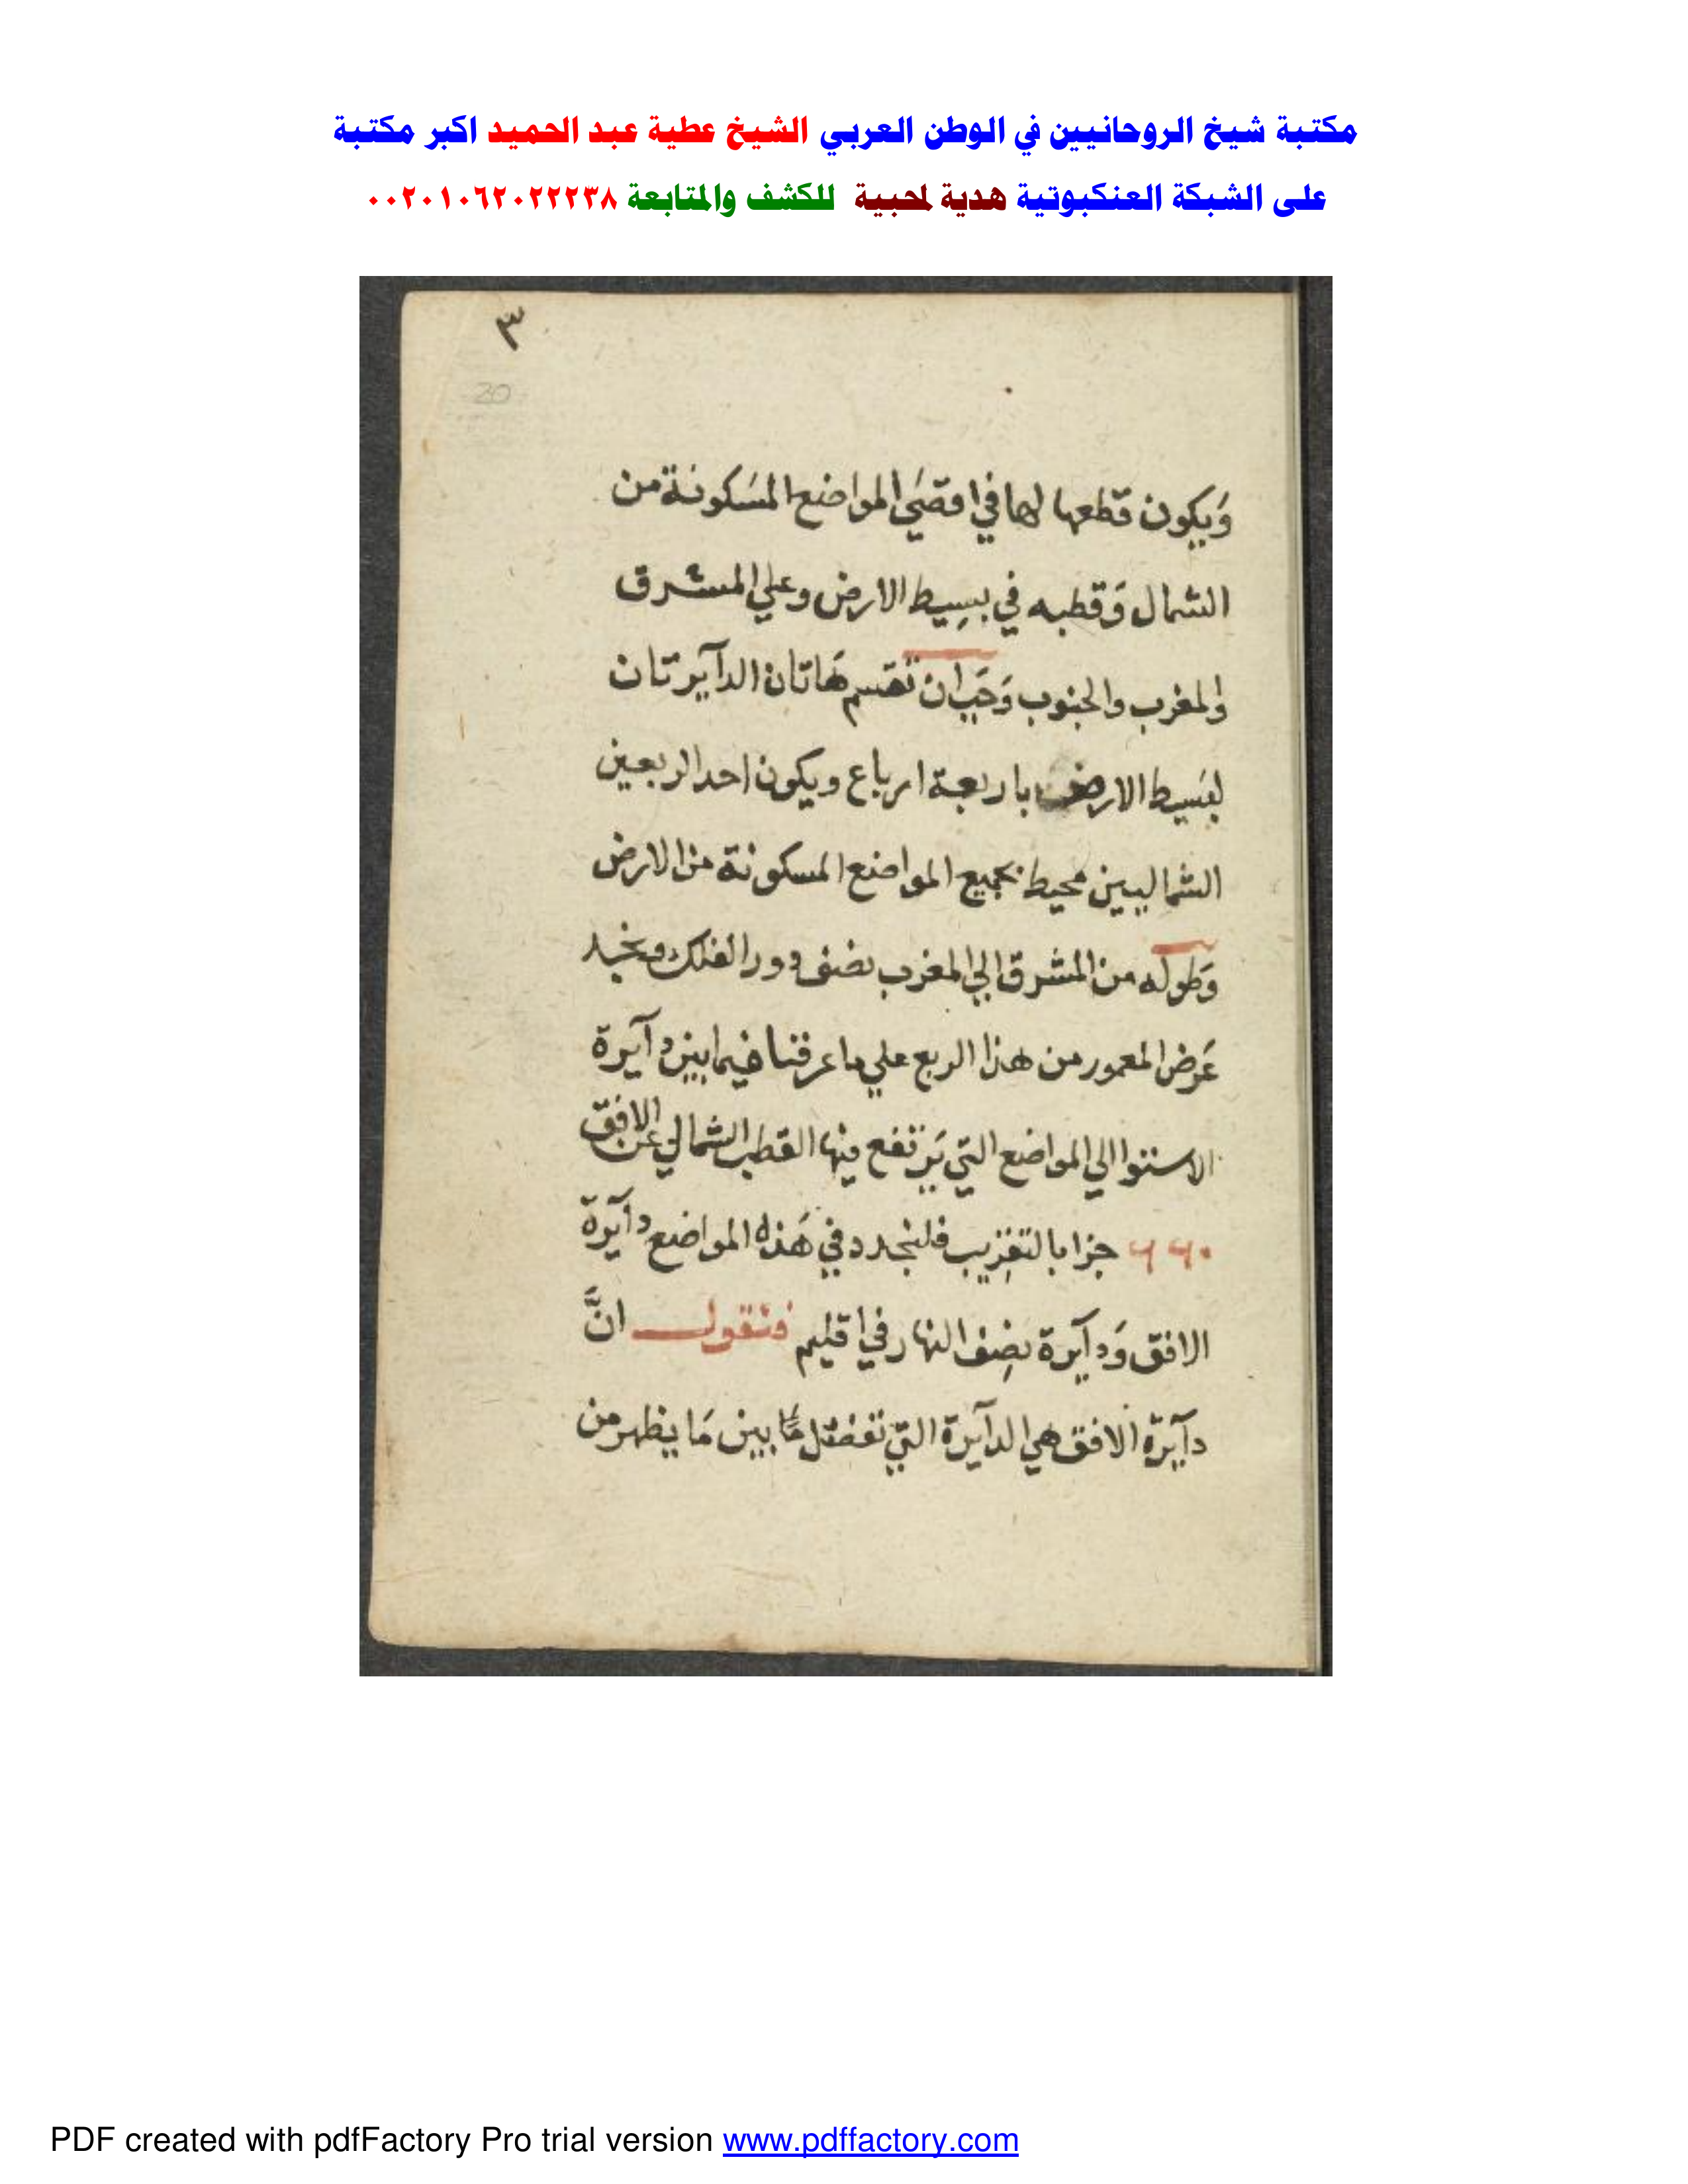 مكتبة شيخ الروحانيين في الوطن العربي الشيخ عطية عبد الحميد اكبر مكتبة
على الشبكة العنكبوتية هدية لمحبية للكشف والمتابعة ٠٠٢٠١٠٦٢٠٢٢٢٣٨
٣
20
وَيكون قطعها لها في اقصَي المواضع المسَكونة من
الشمال وَقطبه في بسِيط الارض وعلي المشرق
والمغرب والجنوب وَجَب ان تقسم هَاتان الدآيرتان
لبسَيط الارض باربعة ارباع ويكون احد الربعين
الشماليين محيط بجميع المواضع المسكونة من الارض
وَطوله من المشرق الي المغرب نصف دور الفلك ونجد
عَرض المعمور من هذا الربع علي ما عرفنا فيما بين دآيرة
الاستوا الي المواضع التي يَرتفع فيها القطب الشمالي عن الافق
جزا بالتقريب فلنجدد في هَذه المواضع دآيرة
الافق وَدآيرة نصِف النهار في اقليم فنقول انَّ
دآيرة الافق هي الدآيرة التي تفصل مَا بين مَا يظهر من
PDF created with pdfFactory Pro trial version www.pdffactory.com